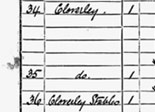 34 Cloverley. 1
35 do. 1
36 Cloverley Stables 1